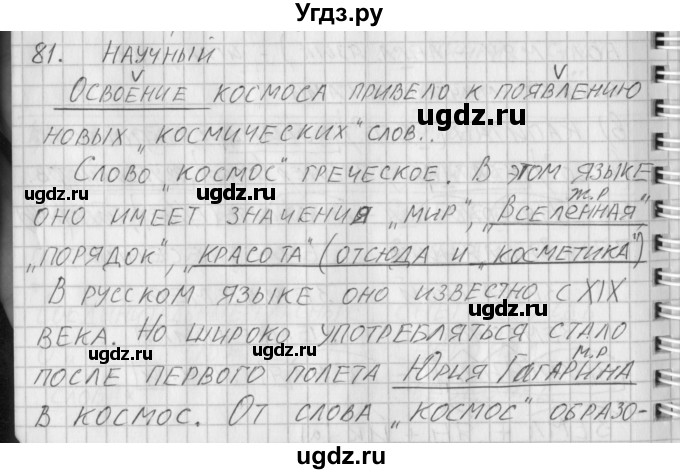 Угдз.ру
81. Научный
Освоение космоса привело к появлению
новых „космических" слов..
Слово "космос" греческое. В этом языке
ж.р
оно имеет значения „мир", „Вселенная",
„порядок", „красота" (отсюда и „косметика")
В русском языке оно известно с XIX
века. Но широко употребляться стало
м.р
после первого полета Юрия Гагарина
в космос. От слова „космос" образо-
ugdz.ru
ugdz.ru
ugdz.ru
ugdz.ru
ugdz.ru
ugdz.ru
ugdz.ru
ugdz.ru
ugdz.ru
ugdz.ru